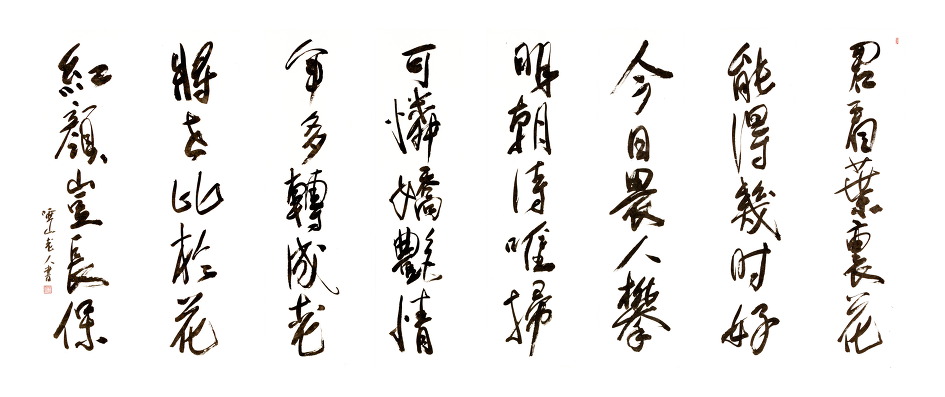 君看葉裏花
能得幾时好
今日畏人攀
明朝待誰掃
可憐嬌艷情
年多轉成老
將世比於花
紅顏豈長保
雲山老人書